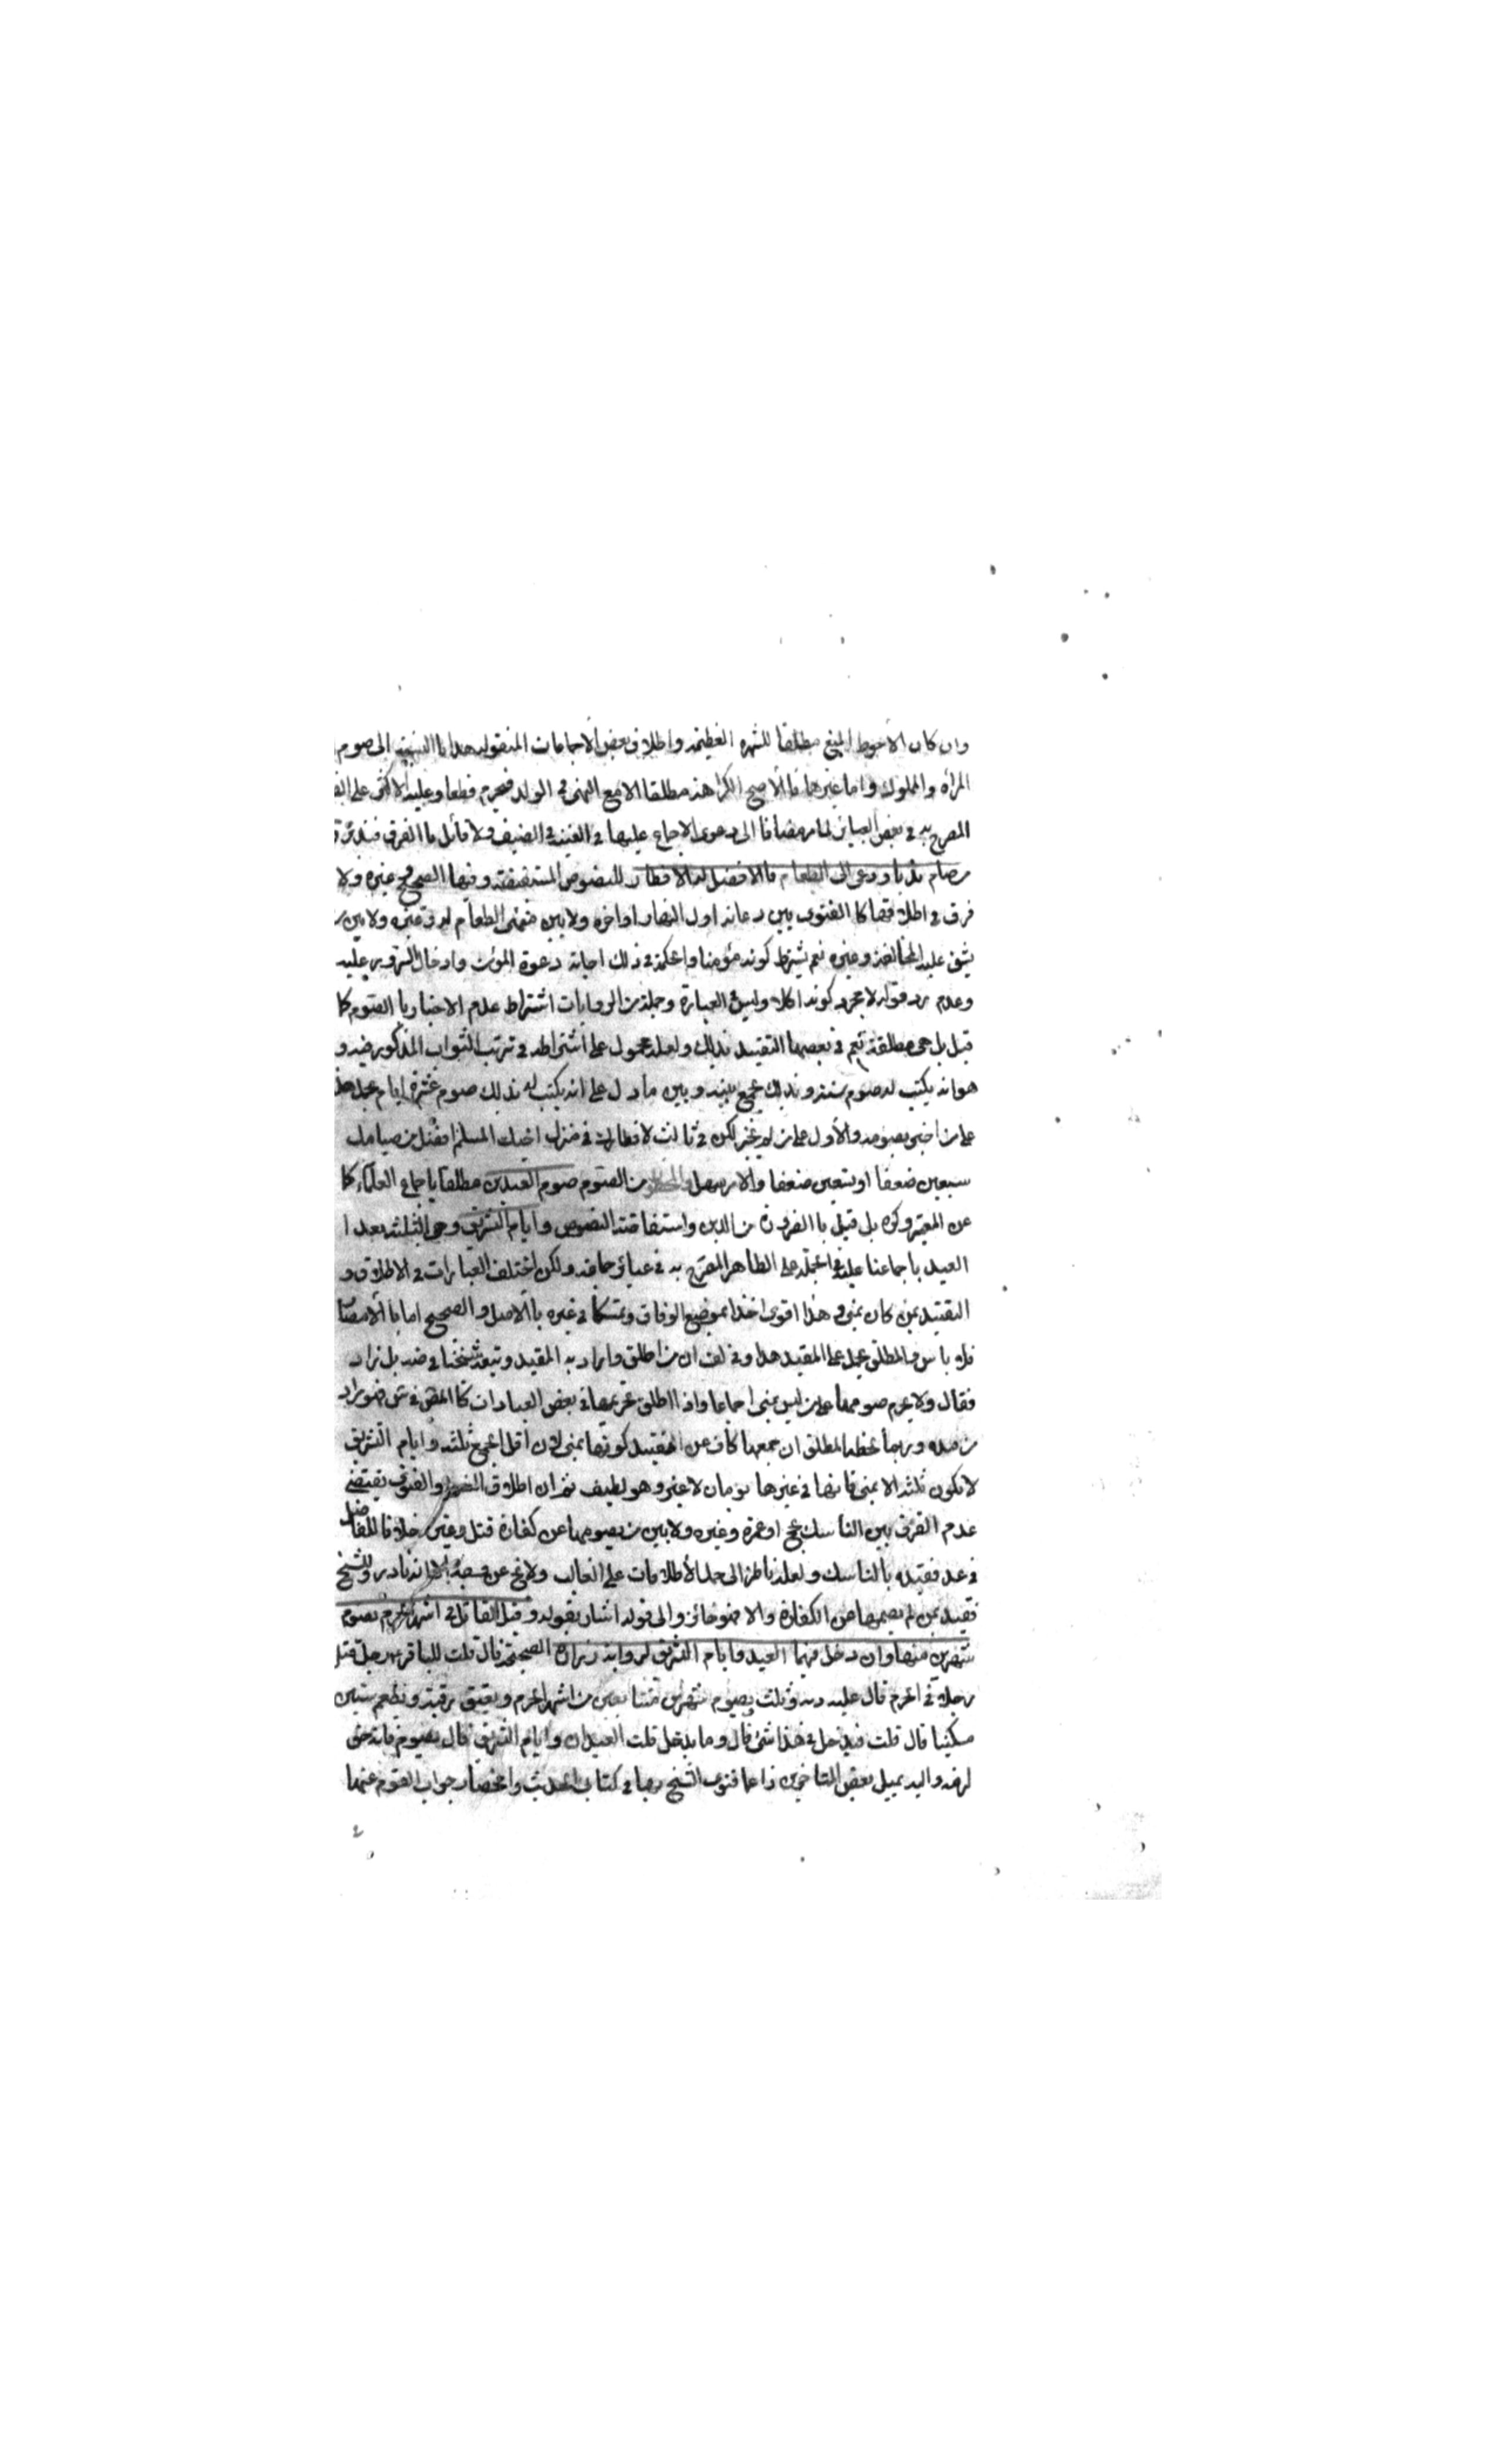 وان كان الأحوط المنع مطلقا للشهرة العظيمة واطلاق بعض الاجماعات المنقولة هذا بالنسبة الى صوم
المرأة والمملوك واما غيرهما فالأصح الكراهة مطلقا الا مع النهي في الولد فيحرم قطعا وعليه الاكثر على
المصرح به في بعض العبائر لما مر مضافا الى دعوى الاجماع عليها في الغنية في الضيف ولا قائل بالفرق
من صام ندبا ودعى الى الطعام فالافضل له الافطار للنصوص المستفيضة وفيها الصحيح وغيره ولا
فرق في اطلاقها كالفتوى بين دعائه اول النهار او اخره ولا بين مهيئ الطعام له وغيره ولا بين من
يشق عليه المخالفة وغيره نعم يشترط كونه مؤمنا والحكمة في ذلك اجابة دعوة المؤمن وادخال السرور عليه
وعدم رد قوله لا مجرد كونه اكلا وليس في العبارة وجملة من الروايات اشتراط عدم الاخبار بالصوم كما
قيل بل هي مطلقة نعم في بعضها التقييد بذلك ولعله محمول على اشتراطه في ترتب الثواب المذكور فيه و
هو انه يكتب له صوم سنة وبذلك يجمع بينه وبين ما دل على انه يكتب له بذلك صوم عشرة ايام بحمل هذا
على من اخبر بصومه والأول على من لم يخبر لكن في ثالث لافطارك في منزل اخيك المسلم افضل من صيامك
سبعين ضعفا او تسعين ضعفا والامر سهل والمحظور من الصوم صوم العيدين مطلقا باجماع العلماء كما
عن المعتبر وكره بل قيل بالضرورة من الدين واستفاضة النصوص وايام التشريق وهي الثلثة بعد
العيد باجماعنا عليه في الجملة على الظاهر المصرح به في عبائر جماعة ولكن اختلف العبارات في الاطلاق و
التقييد بمن كان بمنى وهذا اقوى اخذا بموضع الوفاق وتمسكا في غيره بالأصل والصحيح اما بالأمصار
فلا باس والمطلق يحمل على المقيد هذا وفي لف ان من اطلق واراد به المقيد وتبعه شيخنا في ضه بل زاد
فقال ولا يحرم صومها على من ليس بمنى اجماعا وان اطلق تحريمها في بعض العبارات كالمص في س فهو مراد
من قيده وربما لحظ المطلق ان جمعها كاف عن تقييد كونها بمنى لان اقل الجمع ثلثة وايام التشريق
لا تكون ثلثة الا بمنى فانها في غيرها يومان لا غير وهو لطيف ثم ان اطلاق النصوص والفتوى يقتضي
عدم الفرق بين الناسك بحج او عمرة وغيره ولا بين من يصومها عن كفارة قتل وغيره خلافا للفاضل
في عد فقيده بالناسك ولعله ناظر الى حمل الاطلاقات على الغالب ولا يخ عن وجه الا انه نادر وللشيخ
فقيد بمن لم يصمها عن الكفارة والا فهو جائز والى قوله اشار بقوله وقيل القاتل في اشهر الحرم يصوم
شهرين منها وان دخل فيهما العيد وايام التشريق لرواية زرارة الصحيحة قال قلت للباقر ع رجل قتل
رجلا في الحرم قال عليه دية وثلث ويصوم شهرين متتابعين من اشهر الحرم ويعتق رقبة ويطعم ستين
مسكينا قال قلت فيدخل في هذا شئ قال وما يدخل قلت العيدان وايام التشريق قال يصوم فانه حق
لزمه واليه يميل بعض المتاخرين زاعما فتوى الشيخ بها في كتاب الحديث وانحصار جواب القوم عنها